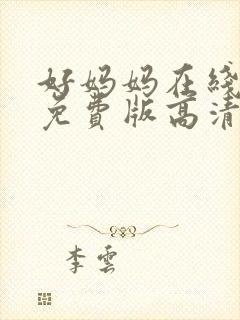 好妈妈在线
免費版高清
李雲